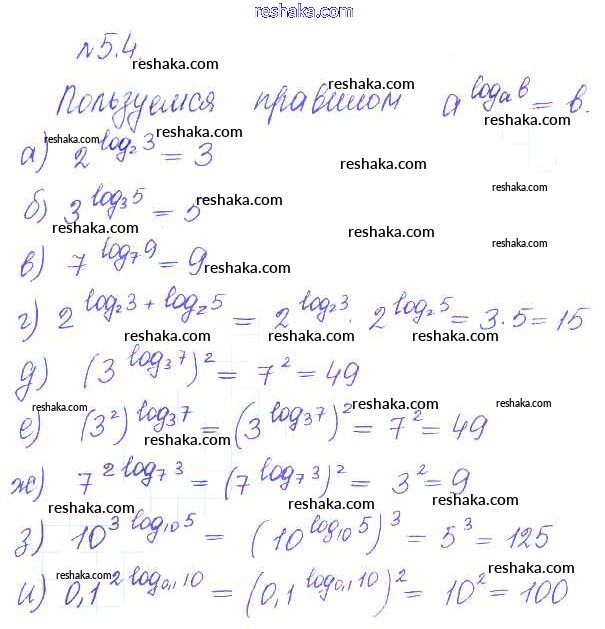 reshaka.com
№5.4
reshaka.com
reshaka.com reshaka.com
Пользуемся правилом a^{log_a b} = b.
reshaka.com reshaka.com reshaka.com
а) 2^{log_2 3} = 3
reshaka.com
reshaka.com reshaka.com
б) 3^{log_3 5} = 5
reshaka.com reshaka.com
в) 7^{log_7 9} = 9
reshaka.com
г) 2^{log_2 3 + log_2 5} = 2^{log_2 3} · 2^{log_2 5} = 3·5 = 15
reshaka.com reshaka.com
д) (3^{log_3 7})^2 = 7^2 = 49
reshaka.com reshaka.com reshaka.com
е) (3^2)^{log_3 7} = (3^{log_3 7})^2 = 7^2 = 49
reshaka.com
ж) 7^{2 log_7 3} = (7^{log_7 3})^2 = 3^2 = 9
reshaka.com reshaka.com
з) 10^{3 log_10 5} = (10^{log_10 5})^3 = 5^3 = 125
reshaka.com reshaka.com reshaka.com
и) 0,1^{2 log_0,1 10} = (0,1^{log_0,1 10})^2 = 10^2 = 100